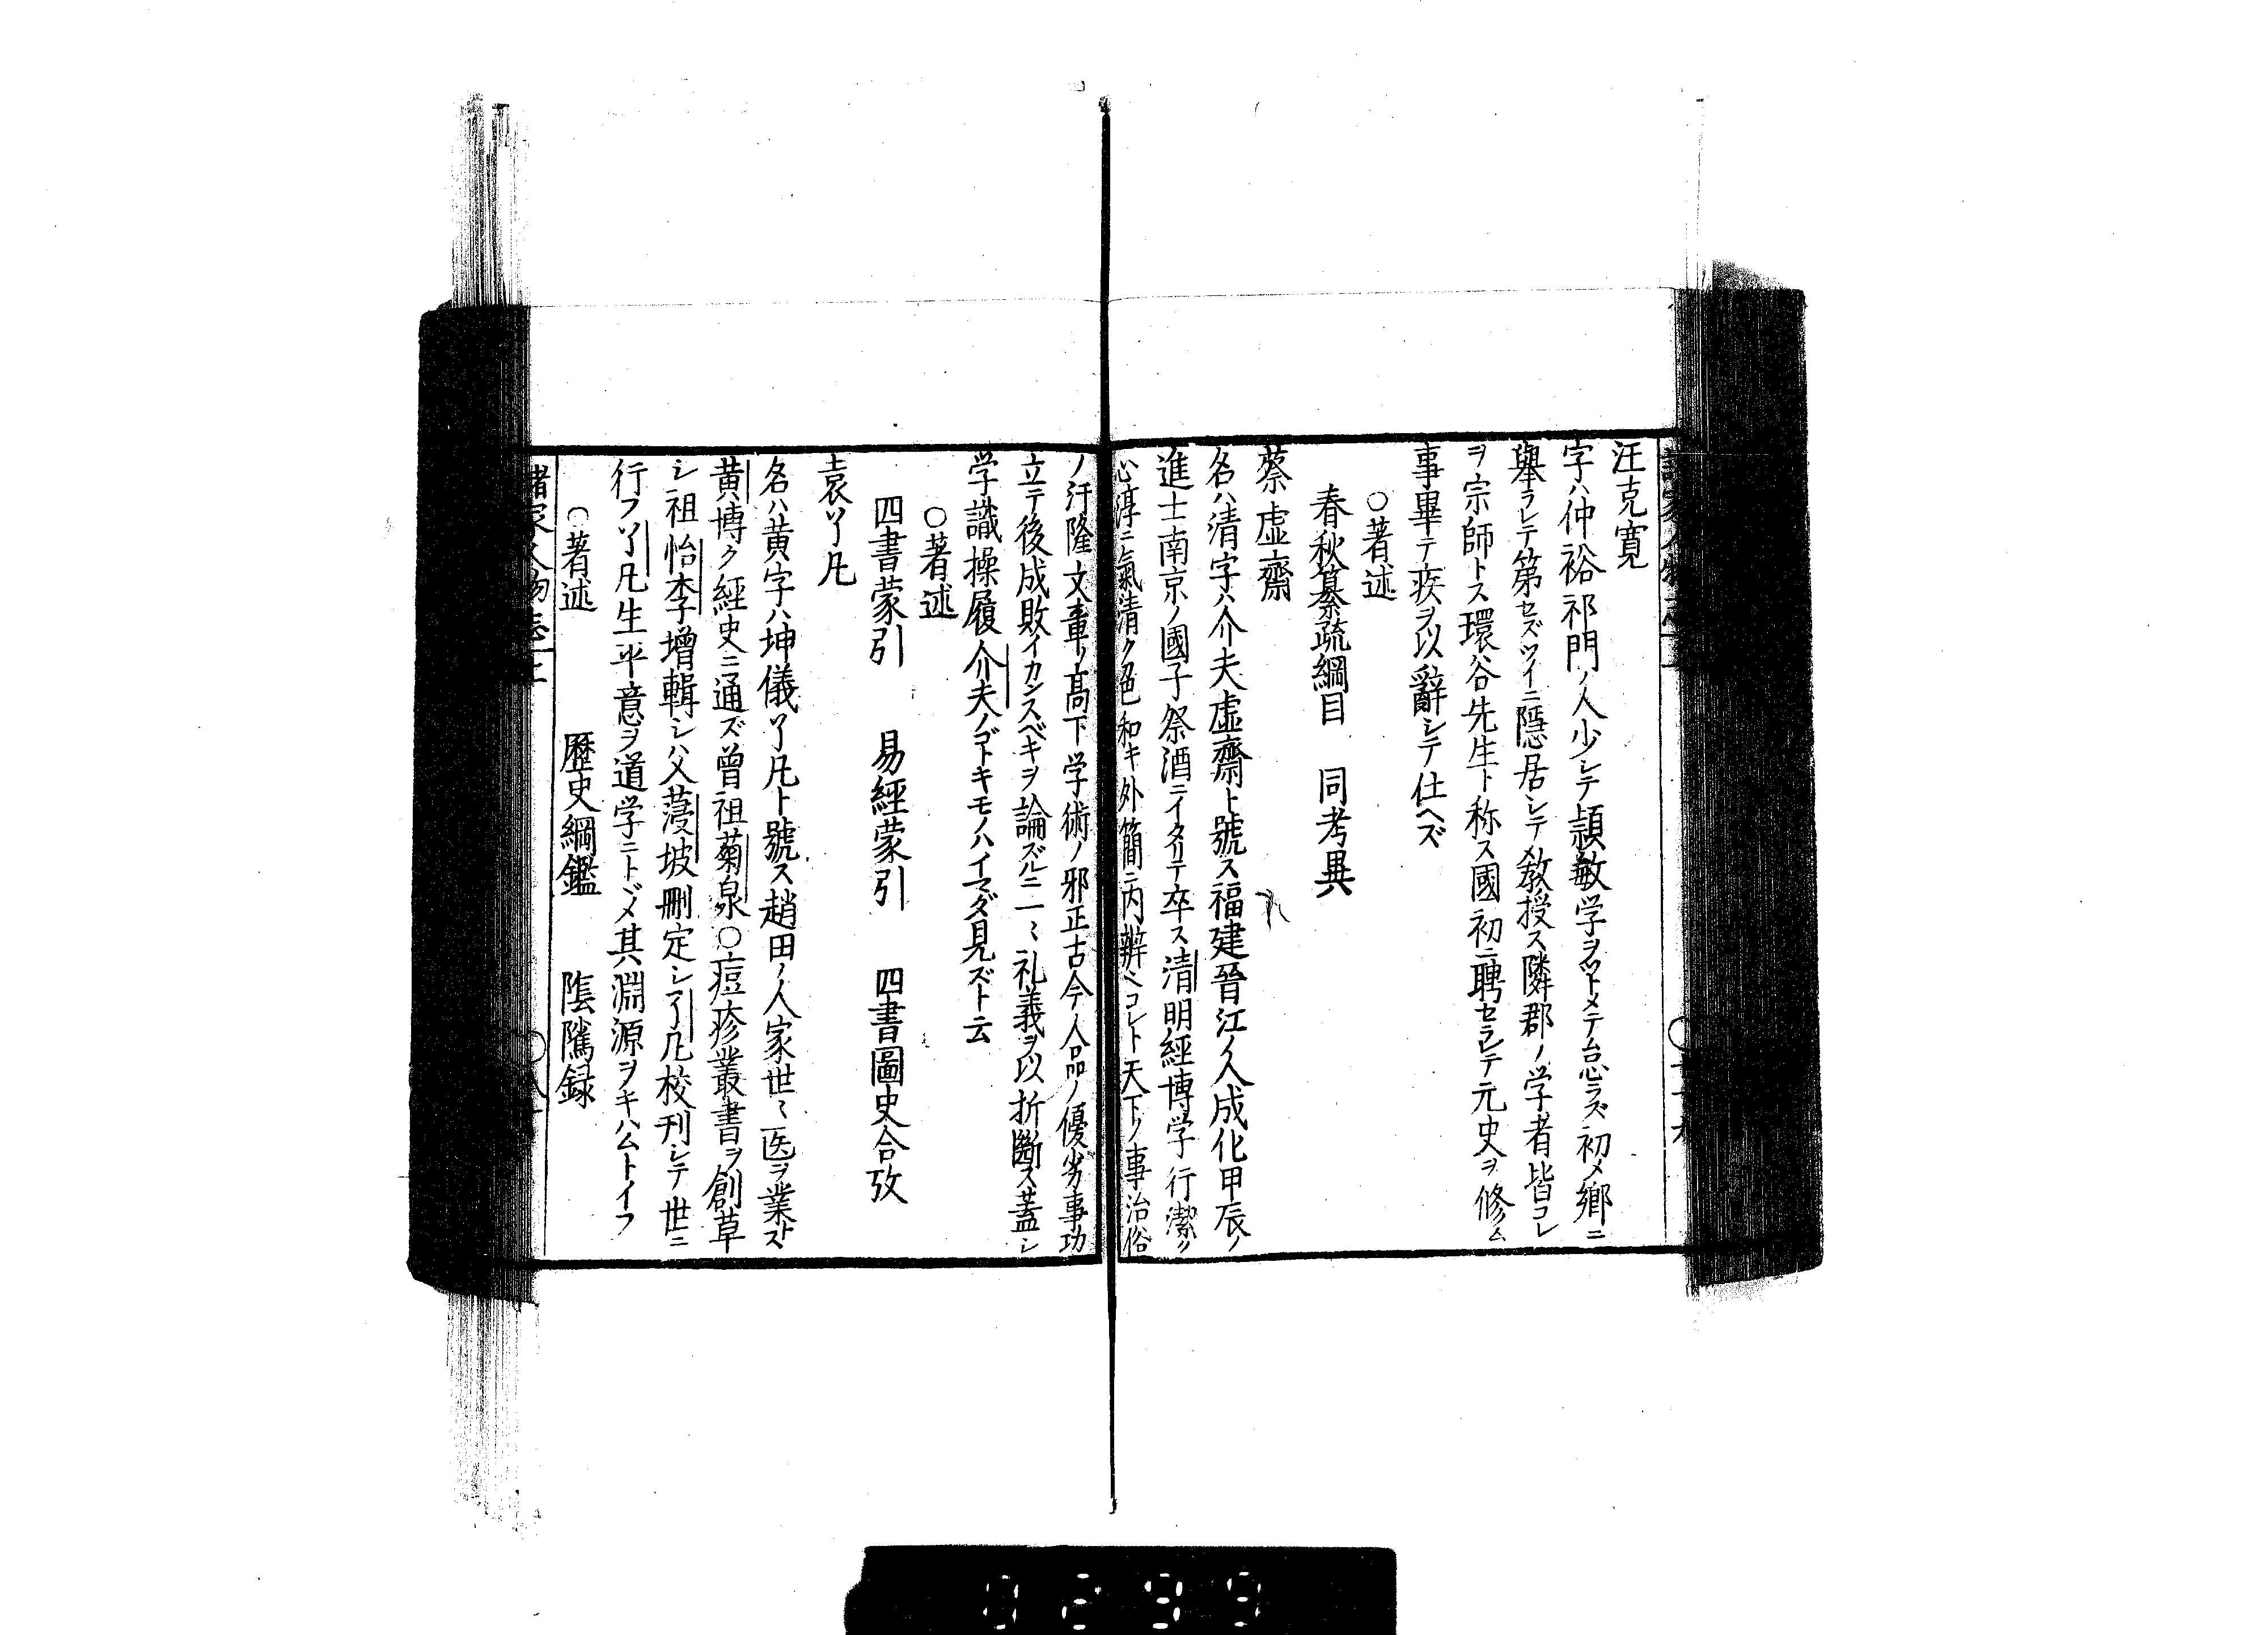 汪克寛
字ハ仲裕祁門ノ人少シテ頴敏学ヲツトメテ怠ラズ初メ郷ニ
舉ラレテ第セズツイニ隠居シテ教授ス隣郡ノ学者皆コレ
ヲ宗師トス環谷先生ト称ス國初ニ聘セラレテ元史ヲ修ム
事畢テ疾ヲ以辭シテ仕ヘズ
○著述
春秋纂疏綱目 同考異
蔡虚齋
名ハ清字ハ介夫虚齋ト號ス福建晉江ノ人成化甲辰ノ
進士南京ノ國子祭酒ニイタリテ卒ス清明經博学行潔ク
心淳ニ氣清ク色和キ外簡ニ内辨ヘコレト天下ノ事治俗
ノ汙隆文章ノ高下学術ノ邪正古今人品ノ優劣事功
立テ後成敗イカンスベキヲ論ズルニ一〻礼義ヲ以折斷ス蓋シ
学識操履介夫ノゴトキモノハイマダ見ズト云
○著述
四書蒙引 易經蒙引 四書圖史合攷
袁了凡
名ハ黄字ハ坤儀了凡ト號ス趙田ノ人家世〻医ヲ業トス
黄博ク經史ニ通ズ曾祖菊泉○痘疹叢書ヲ創草
シ祖怡杏増輯シ父蔆坡删定シ了凡校刊シテ世ニ
行フ了凡生平意ヲ道学ニトヾメ其淵源ヲキハムトイフ
○著述 歴史綱鑑 隂隲録
諸家人物志上